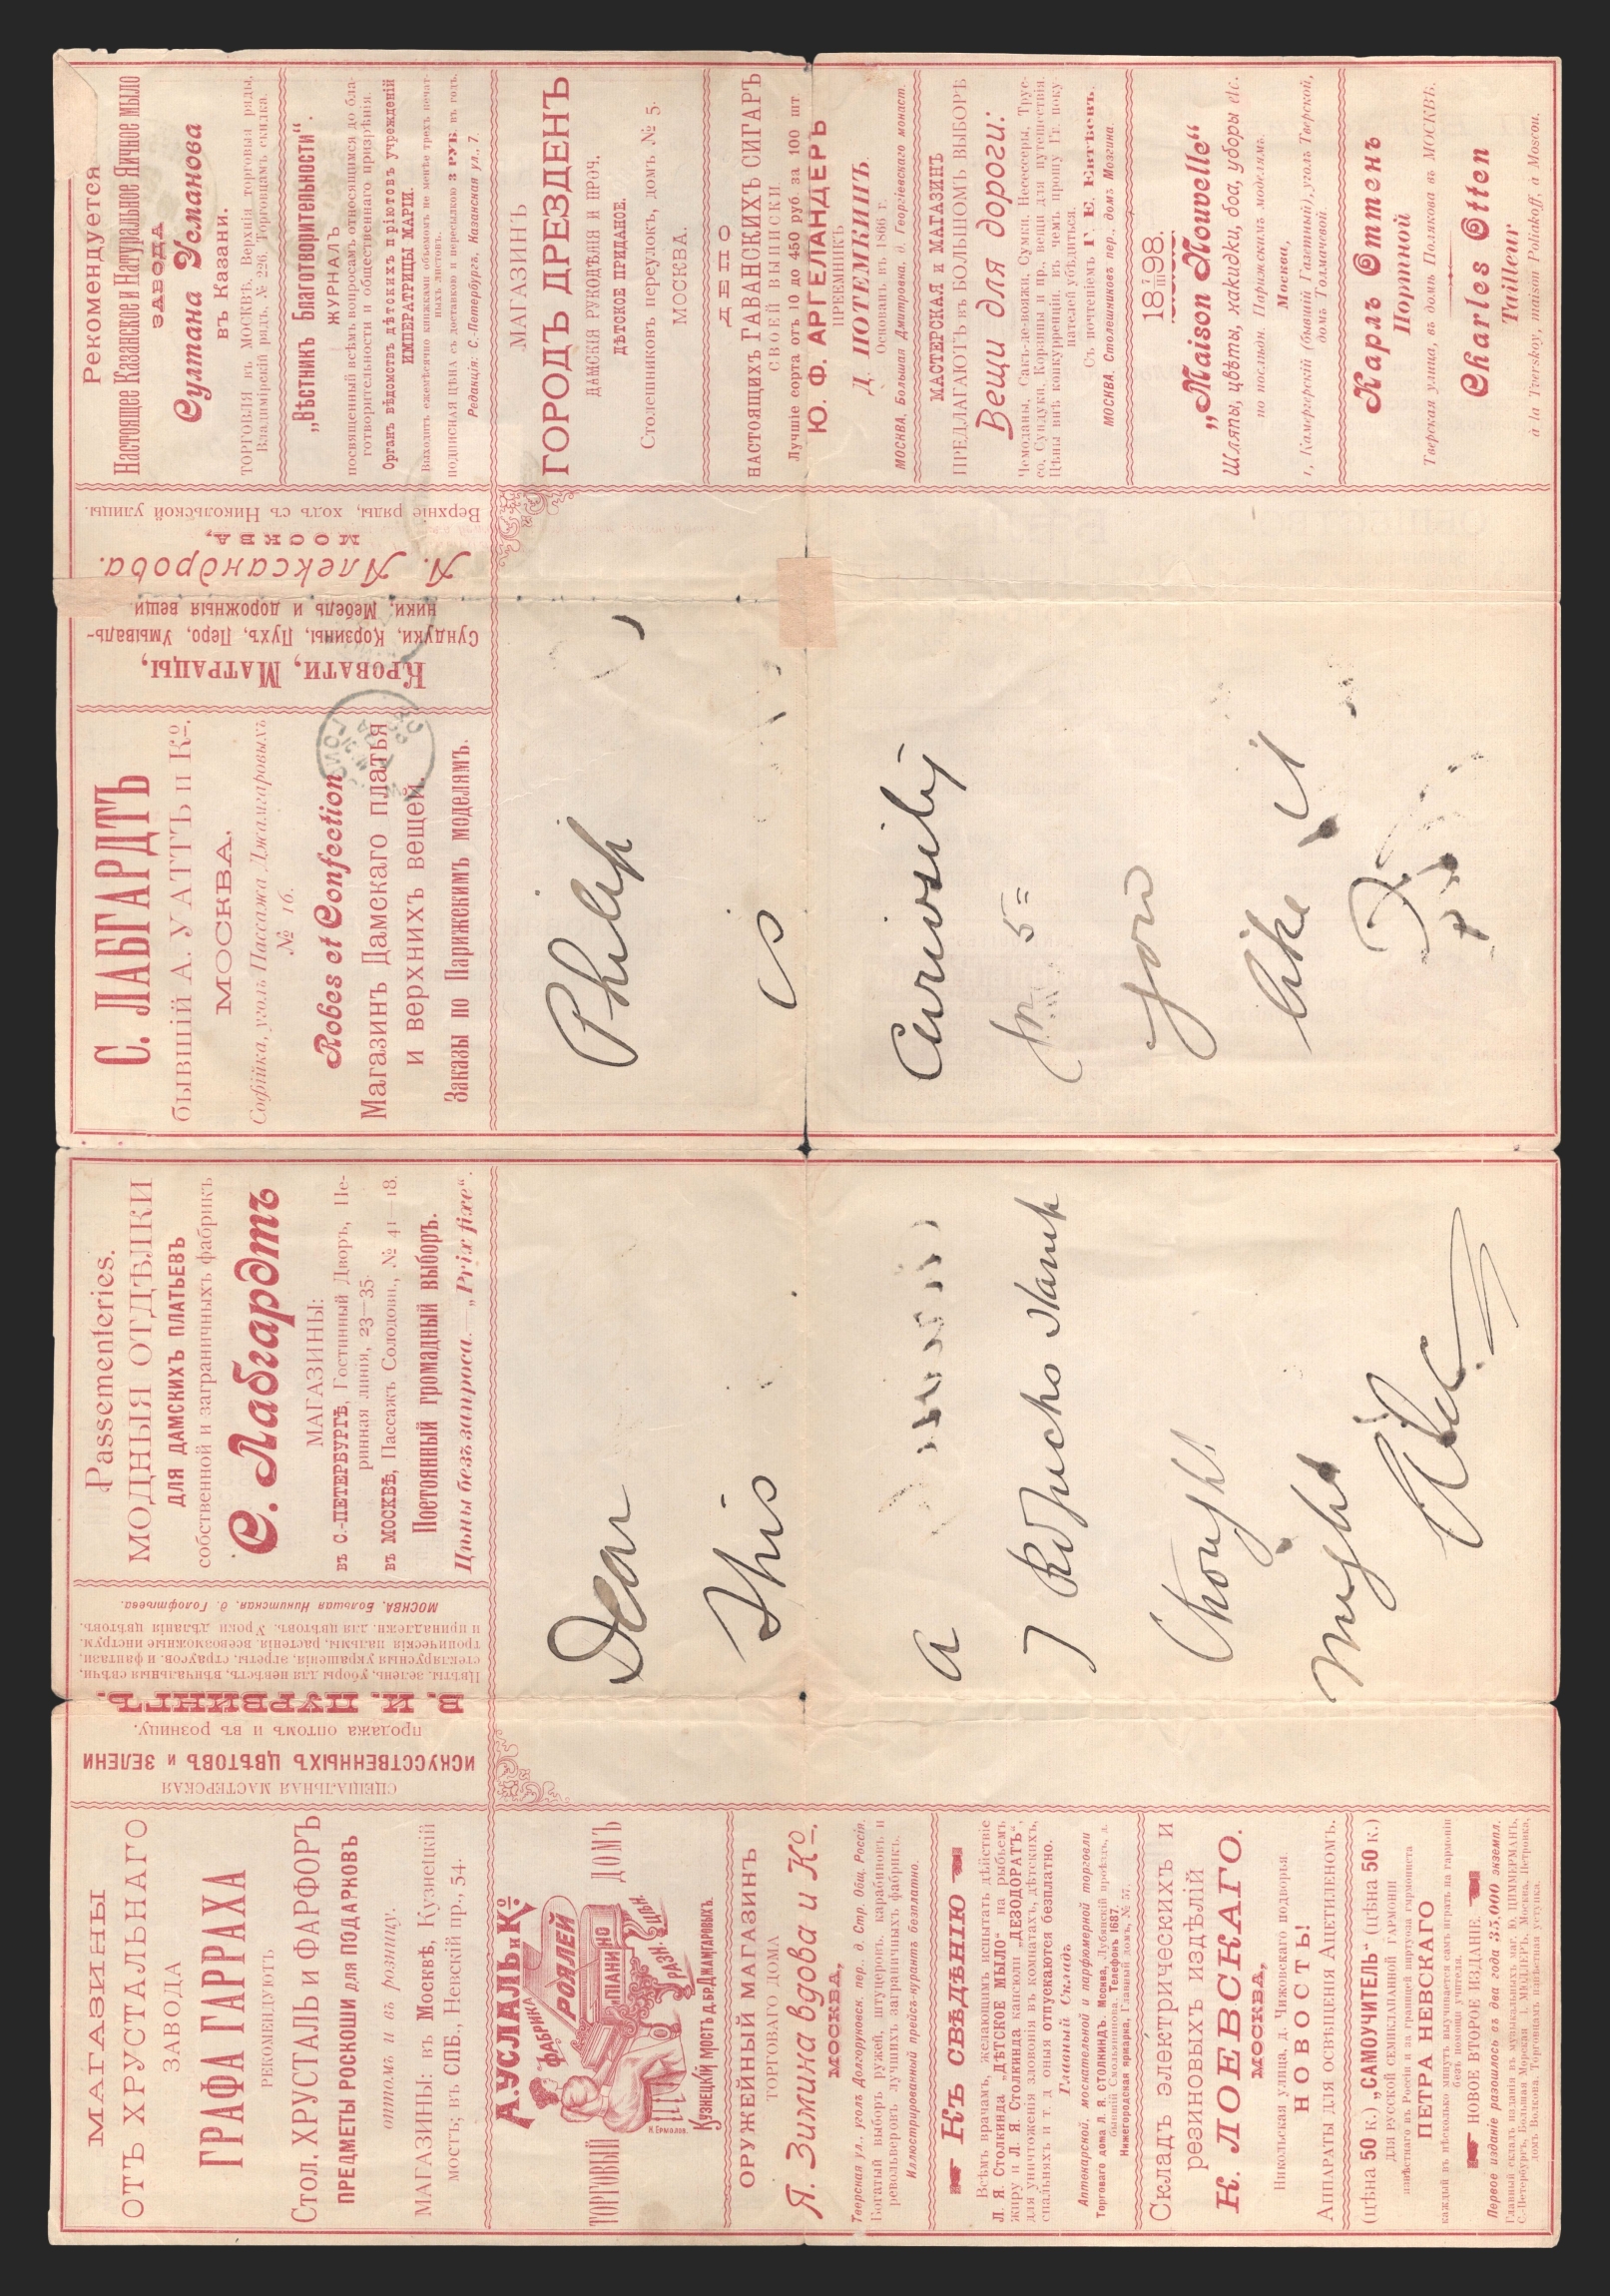 Рекомендуется
Настоящее Казанское и Натуральное Яичное мыло
ЗАВОДА
Султана Усманова
въ Казани.
ТОРГОВЛЯ въ МОСКВѢ, Верхнія торговыя ряды,
Владимірскій рядъ, № 226. Торговцамъ скидка.
„Вѣстникъ Благотворительности“.
ЖУРНАЛЪ
посвященный всѣмъ вопросамъ, относящимся до бла-
готворительности и общественнаго призрѣнія.
Органъ вѣдомствъ дѣтскихъ пріютовъ учрежденій
ИМПЕРАТРИЦЫ МАРІИ.
Выходитъ ежемѣсячно книжками объемомъ не менѣе трехъ печат-
ныхъ листовъ.
ПОДПИСНАЯ ЦѢНА съ доставкою и пересылкою 3 РУБ. въ годъ.
Редакція: С.-Петербургъ, Казанская ул., 7.
МАГАЗИНЪ
ГОРОДЪ ДРЕЗДЕНЪ
ДАМСКІЯ РУКОДѢЛІЯ И ПРОЧ.
ДѢТСКОЕ ПРИДАНОЕ.
Столешниковъ переулокъ, домъ № 5.
МОСКВА.
ДЕПО
НАСТОЯЩИХЪ ГАВАНСКИХЪ СИГАРЪ
СВОЕЙ ВЫПИСКИ
Лучшіе сорта отъ 10 до 450 руб. за 100 шт.
Ю. Ф. АРГЕЛАНДЕРЪ
ПРЕЕМНИКЪ
Д. ПОТЕМКИНЪ.
Основанъ въ 1866 г.
МОСКВА, Большая Дмитровка, д. Георгіевскаго монаст.
МАСТЕРСКАЯ и МАГАЗИНЪ
ПРЕДЛАГАЮТЪ въ БОЛЬШОМЪ ВЫБОРѢ
Вещи для дороги:
Чемоданы, Сакъ-де-вояжи, Сумки, Несессеры, Трус-
со, Сундуки, Корзины и пр. вещи для путешествія.
Цѣны внѣ конкурренціи, въ чемъ прошу Гг. поку-
пателей убѣдиться.
Съ почтеніемъ Г. Е. Евтѣевъ.
МОСКВА, Столешниковъ пер., домъ Мозгина.
18 7/III 98.
„Maison Nouvelle“
Шляпы, цвѣты, накидки, боа, уборы etc.
по послѣдн. Парижскимъ моделямъ.
Москва,
1, Камергерскій (бывшій Газетный), уголъ Тверской,
домъ Толмачевой.
Карлъ Оттенъ
Портной
Тверская улица, въ домѣ Полякова въ МОСКВѢ.
Charles Otten
Tailleur
à la Tverskoy, maison Poliakoff, à Moscou.
Кровати, Матрацы,
Сундуки, Корзины, Пухъ, Перо, Умываль-
ники, Мебель и дорожныя вещи
А. Александрова.
МОСКВА,
Верхніе ряды, ходъ съ Никольской улицы.
С. ЛАБГАРДТЪ
бывшій А. УАТТЪ и Ко.
МОСКВА,
Софійка, уголъ Пассажа Джамгаровыхъ
№ 16.
Robes et Confection
Магазинъ Дамскаго платья
и верхнихъ вещей.
Заказы по Парижскимъ моделямъ.
Passementeries.
МОДНЫЯ ОТДѢЛКИ
ДЛЯ ДАМСКИХЪ ПЛАТЬЕВЪ
собственной и заграничныхъ фабрикъ
С. Лабгардтъ
МАГАЗИНЫ:
въ С.-ПЕТЕРБУРГѢ, Гостинный Дворъ, Пе-
ринная линія, 23—35.
въ МОСКВѢ, Пассажъ Солодовн., № 41—18.
Постоянный громадный выборъ.
Цѣны безъ запроса.—„Prix fixe“.
Dear Philip
This is
a Curiosity
7 Kopecks Stamp for 5=
thought you
might like it
Alec
СПЕЦІАЛЬНАЯ МАСТЕРСКАЯ
ИСКУССТВЕННЫХЪ ЦВѢТОВЪ и ЗЕЛЕНИ
продажа оптомъ и въ розницу.
В. И. ПУРВИНГЪ.
Цвѣты, зелень, уборы для невѣстъ, вѣнчальныя свѣчи,
стеклярусныя украшенія, эгреты, страусов. и фантази,
тропическія пальмы, растенія, всевозможные инструм.
и принадлежн. для цвѣтовъ. Уроки дѣланія цвѣтовъ.
МОСКВА, Большая Никитская, д. Голофтѣева.
МАГАЗИНЫ
ОТЪ ХРУСТАЛЬНАГО
ЗАВОДА
ГРАФА ГАРРАХА
РЕКОМЕНДУЮТЪ
Стол. ХРУСТАЛЬ и ФАРФОРЪ
ПРЕДМЕТЫ РОСКОШИ для ПОДАРКОВЪ
оптомъ и въ розницу.
МАГАЗИНЫ: въ Москвѣ, Кузнецкій
мостъ; въ СПБ., Невскій пр., 54.
А. УСЛАЛЬ и Ко
ФАБРИКА
РОЯЛЕЙ
ПІАНИНО
РАЗН. ЦѢН.
ТОРГОВЫЙ ДОМЪ
Н. Ермолов.
КУЗНЕЦКІЙ МОСТЪ Д. БР. ДЖАМГАРОВЫХЪ.
ОРУЖЕЙНЫЙ МАГАЗИНЪ
ТОРГОВАГО ДОМА
Я. Зимина вдова и Ко.
МОСКВА,
Тверская ул., уголъ Долгоруковск. пер. д. Стр. Общ. Россія.
Богатый выборъ ружей, штуцеровъ, карабиновъ и
револьверовъ лучшихъ заграничныхъ фабрикъ.
Иллюстрированный прейсъ-курантъ безплатно.
Къ СВѢДѢНІЮ
Всѣмъ врачамъ, желающимъ испытать дѣйствіе
Л. Я. Столкинда „ДѢТСКОЕ МЫЛО“ на рыбьемъ
жиру и Л. Я. Столкинда капсюли „ДЕЗОДОРАТЪ“,
для уничтоженія зловонія въ комнатахъ, дѣтскихъ,
спальняхъ и т. д. онія отпускаются безплатно.
Главный Складъ
Аптекарской, москательной и парфюмерной торговли
Торговаго дома Л. Я. СТОЛКИНДЪ. Москва, Лубянскій проѣздъ, д.
бывшій Смольянинова. Телефонъ 1687.
Нижегородская ярмарка, Главный домъ, № 57.
Складъ электрическихъ и
резиновыхъ издѣлій
К. ЛОЕВСКАГО.
МОСКВА,
Никольская улица, д. Чижовскаго подворья
НОВОСТЬ!
Аппараты для освѣщенія Ацетиленомъ.
(цѣна 50 к.) „САМОУЧИТЕЛЬ“ (цѣна 50 к.)
ДЛЯ РУССКОЙ СЕМИКЛАПАННОЙ ГАРМОНІИ
извѣстнаго въ Россіи и за границей виртуоза гармониста
ПЕТРА НЕВСКАГО
каждый въ нѣсколько минутъ выучивается самъ играть на гармоніи
безъ помощи учителя.
НОВОЕ ВТОРОЕ ИЗДАНІЕ.
Первое изданіе разошлось въ два года 35,000 экземпл.
Главный складъ изданія въ музыкальныхъ маг. Ю. ЦИММЕРМАНЪ,
С.-Петербургъ, Большая Морская д. МЕЛЛЕРЪ. Москва, Петровка,
домъ Волкова. Торговцамъ извѣстная уступка.